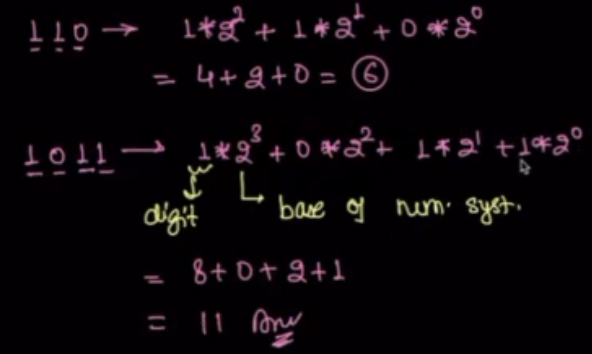 110 → 1*2² + 1*2¹ + 0*2⁰
= 4+2+0 = 6
1011 → 1*2³ + 0*2² + 1*2¹ + 1*2⁰
digit base of num. syst.
= 8+0+2+1
= 11 Ans